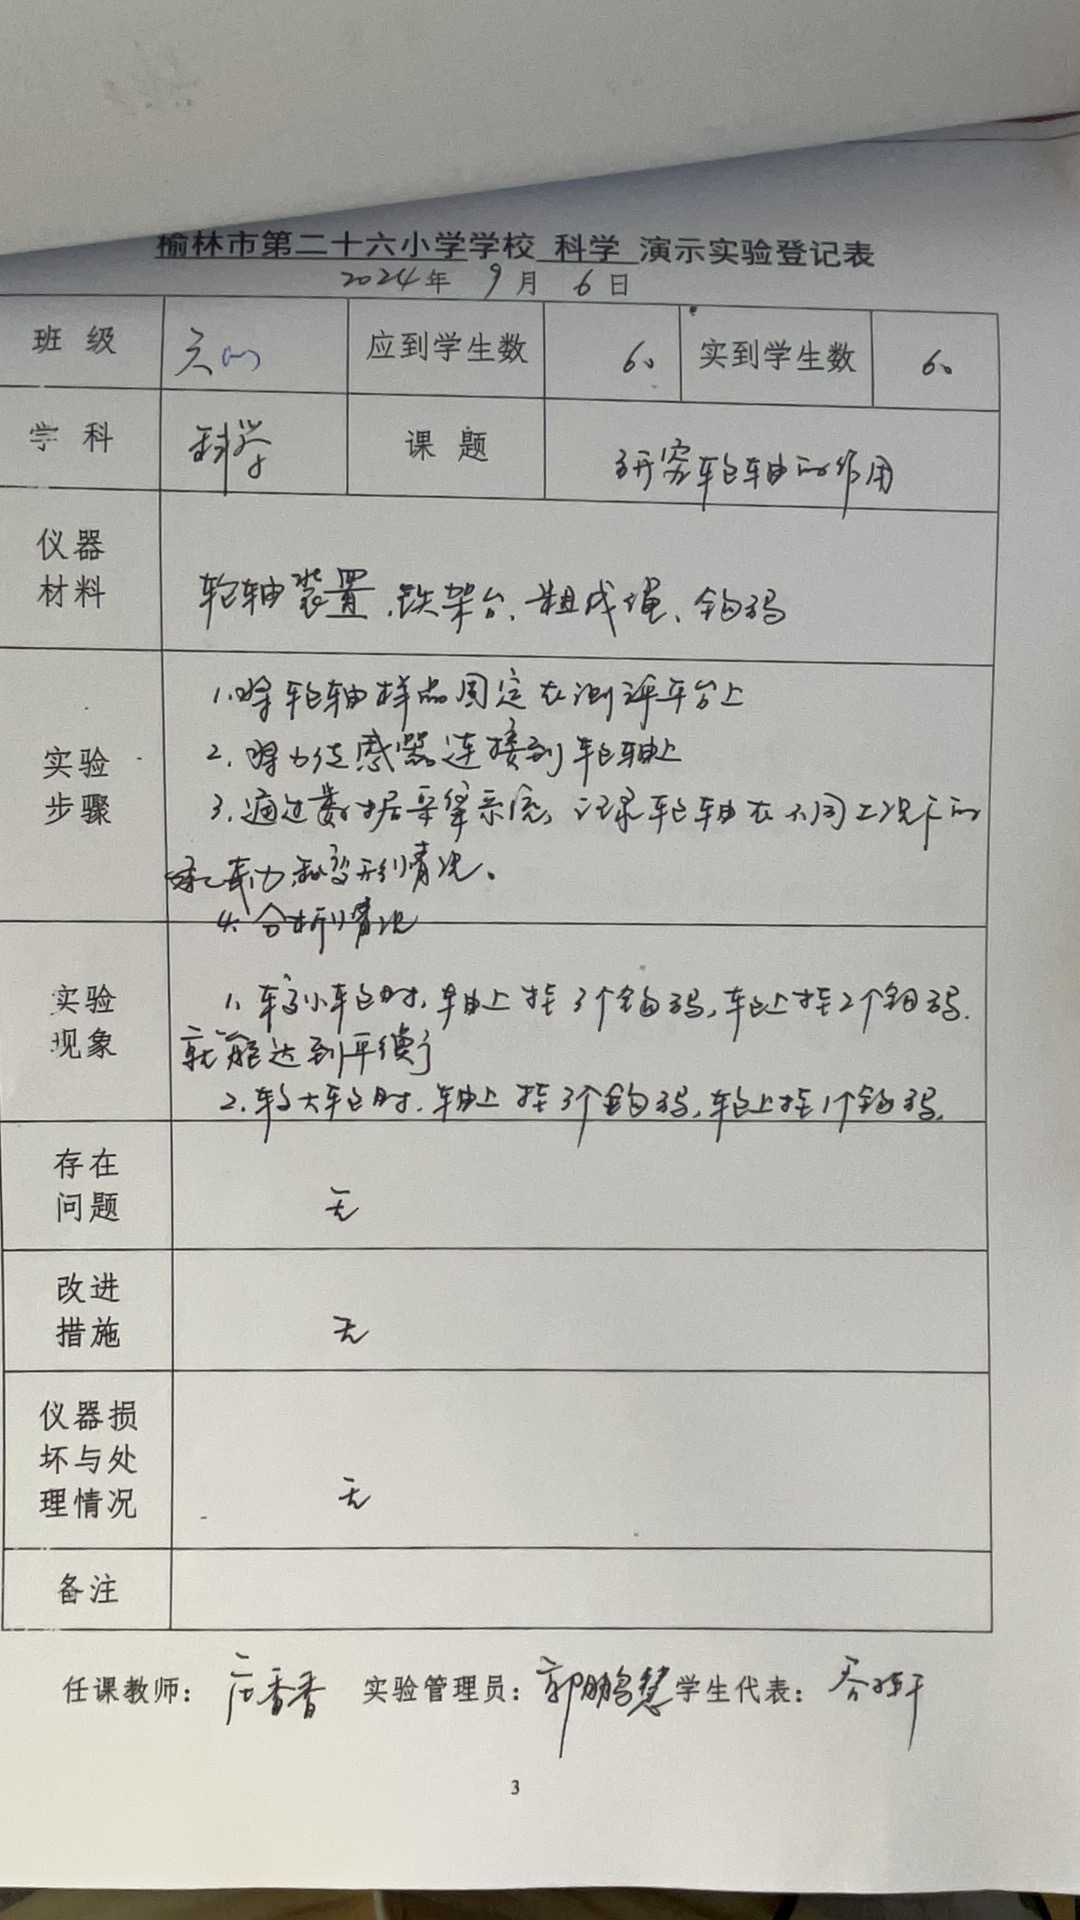 榆林市第二十六小学学校 科学 演示实验登记表
2024年 9月 6日
班级 应到学生数 60 实到学生数 60
学科 科学 课题 研究轮轴的作用
仪器材料 轮轴装置、铁架台、粗成绳、钩码
实验步骤
1.将轮轴样品固定在测评平台上
2.将力传感器连接到轮轴上
3.通过数据采集系统,记录轮轴在不同工况下的
承载力和变形情况。
4.分析情况
实验现象
1.较小轮时,轴上挂3个钩码,轮上挂2个钩码.
就能达到平衡了
2.较大轮时.轴上挂3个钩码,轮上挂1个钩码.
存在问题 无
改进措施 无
仪器损坏与处理情况 无
备注
任课教师: 香香 实验管理员: 郭鹏慧 学生代表:
3